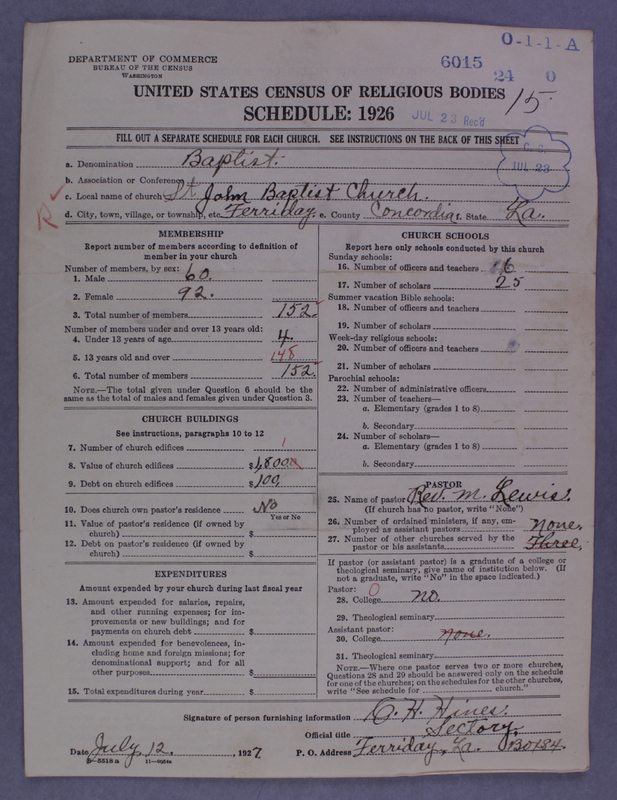 O-1-1-A
DEPARTMENT OF COMMERCE
BUREAU OF THE CENSUS
WASHINGTON
6015
24 0
UNITED STATES CENSUS OF RELIGIOUS BODIES
15.
SCHEDULE: 1926
JUL 23 Rec'd
FILL OUT A SEPARATE SCHEDULE FOR EACH CHURCH. SEE INSTRUCTIONS ON THE BACK OF THIS SHEET
JUL 23
a. Denomination Baptist.
b. Association or Conference
c. Local name of church St John Baptist Church.
R
d. City, town, village, or township, etc. Ferriday. e. County Concordia f. State La.
MEMBERSHIP
Report number of members according to definition of
member in your church
Number of members, by sex:
1. Male 60.
2. Female 92.
3. Total number of members 152.
Number of members under and over 13 years old:
4. Under 13 years of age 4.
5. 13 years old and over 148
6. Total number of members 152.
NOTE.—The total given under Question 6 should be the
same as the total of males and females given under Question 3.
CHURCH BUILDINGS
See instructions, paragraphs 10 to 12
7. Number of church edifices 1
8. Value of church edifices $1,800
9. Debt on church edifices $100.
10. Does church own pastor's residence No
Yes or No
11. Value of pastor's residence (if owned by
church) $
12. Debt on pastor's residence (if owned by
church) $
EXPENDITURES
Amount expended by your church during last fiscal year
13. Amount expended for salaries, repairs,
and other running expenses; for im-
provements or new buildings; and for
payments on church debt $
14. Amount expended for benevolences, in-
cluding home and foreign missions; for
denominational support; and for all
other purposes $
15. Total expenditures during year $
CHURCH SCHOOLS
Report here only schools conducted by this church
Sunday schools:
16. Number of officers and teachers 6
17. Number of scholars 25
Summer vacation Bible schools:
18. Number of officers and teachers
19. Number of scholars
Week-day religious schools:
20. Number of officers and teachers
21. Number of scholars
Parochial schools:
22. Number of administrative officers
23. Number of teachers—
a. Elementary (grades 1 to 8)
b. Secondary
24. Number of scholars—
a. Elementary (grades 1 to 8)
b. Secondary
PASTOR
25. Name of pastor Rev. M. Lewis.
(If church has no pastor, write "None")
26. Number of ordained ministers, if any, em-
ployed as assistant pastors none.
27. Number of other churches served by the
pastor or his assistants Three.
If pastor (or assistant pastor) is a graduate of a college or
theological seminary, give name of institution below. (If
not a graduate, write "No" in the space indicated.)
Pastor: 0
28. College no.
29. Theological seminary
Assistant pastor:
30. College none.
31. Theological seminary
NOTE.—Where one pastor serves two or more churches,
Questions 28 and 29 should be answered only on the schedule
for one of the churches; on the schedules for the other churches,
write "See schedule for church."
Signature of person furnishing information O. H. Hines.
Official title Sectory.
Date July 12. , 1927. P. O. Address Ferriday, La.
11—8024a